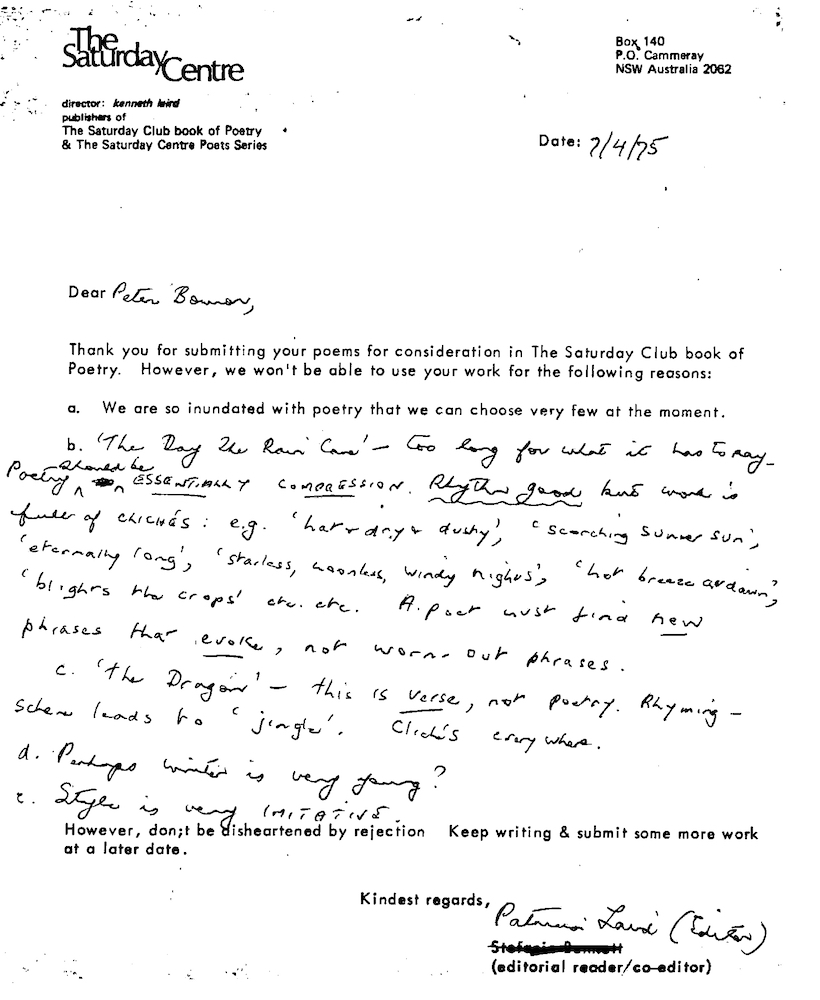 The
Saturday Centre
Box 140
P.O. Cammeray
NSW Australia 2062
director: kenneth laird
publishers of
The Saturday Club book of Poetry
& The Saturday Centre Poets Series
Date: 7/4/75
Dear Peter
Thank you for submitting your poems for consideration in The Saturday Club book of
Poetry. However, we won't be able to use your work for the following reasons:
a. We are so inundated with poetry that we can choose very few at the moment.
b. 'The Day The Rain Came' – too long for what it has to say –
Poetry should be ESSENTIALLY COMPRESSION. Rhythm good but work is
full of clichés: e.g. 'hot & dry & dusty', 'scorching summer sun',
'eternally long', 'starless, moonless, windy nights', 'hot breeze at dawn',
'blights the crops' etc. etc. A poet must find new
phrases that evoke, not worn-out phrases.
c. 'The Dragon' – this is verse, not poetry. Rhyming –
scheme leads to 'jingle'. Clichés everywhere.
d. Perhaps writer is very young?
e. Style is very IMITATIVE.
However, don;t be disheartened by rejection Keep writing & submit some more work
at a later date.
Kindest regards,
Patricia Laird (Editor)
(editorial reader/co-editor)